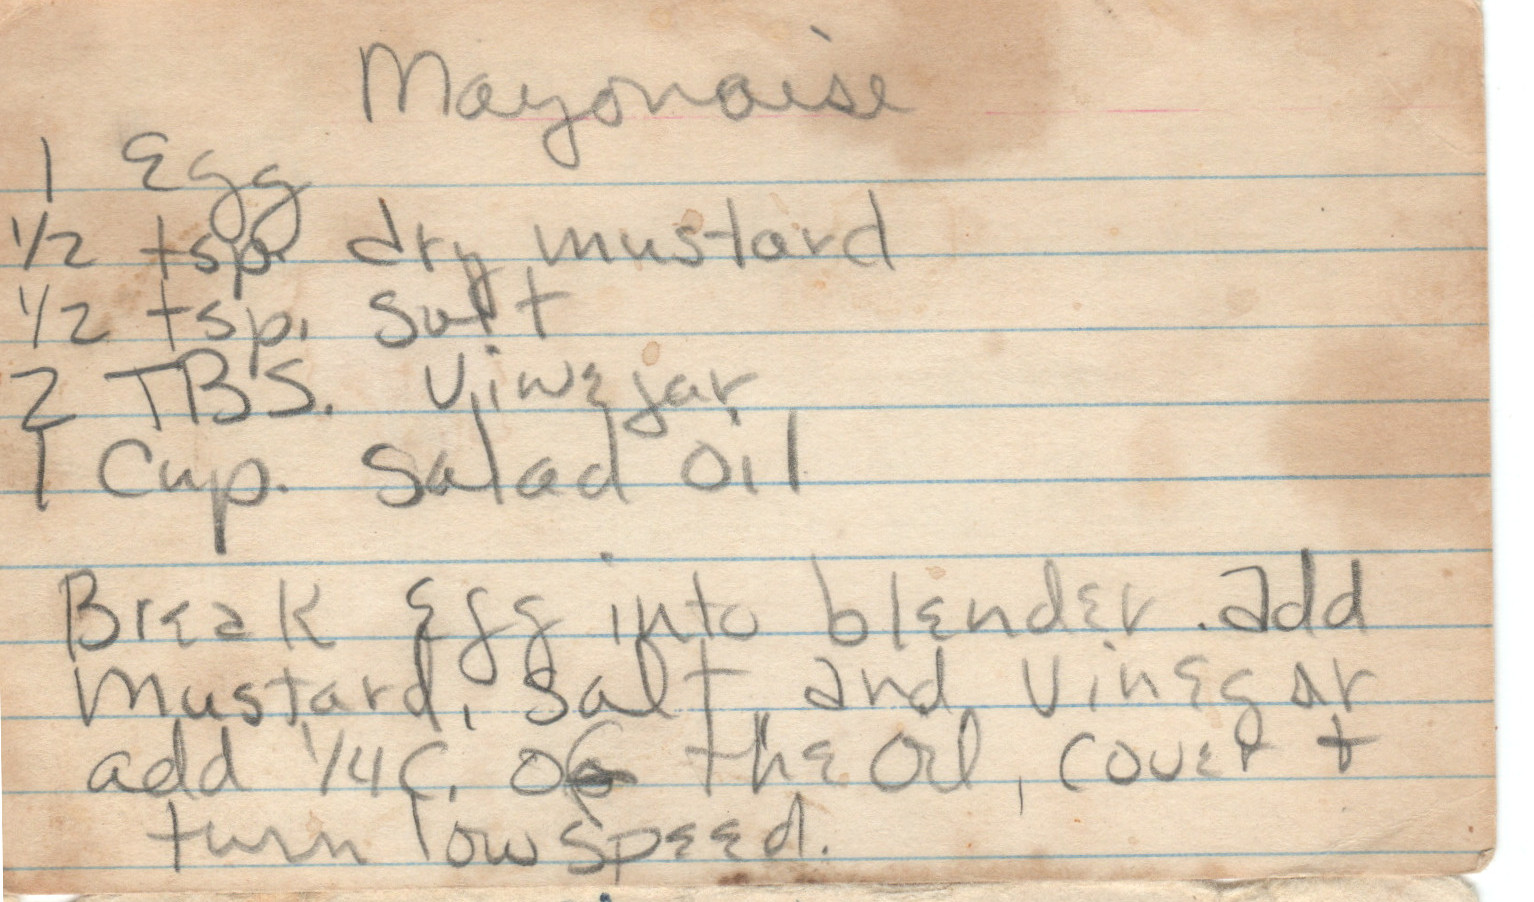 Mayonaise
1 Egg
1/2 tsp. dry mustard
1/2 tsp. Salt
2 TBS. Vinegar
1 Cup. Salad Oil
Break Egg into blender. add
Mustard, Salt, and Vinegar
add 1/4 C. of the Oil, cover +
turn low speed.